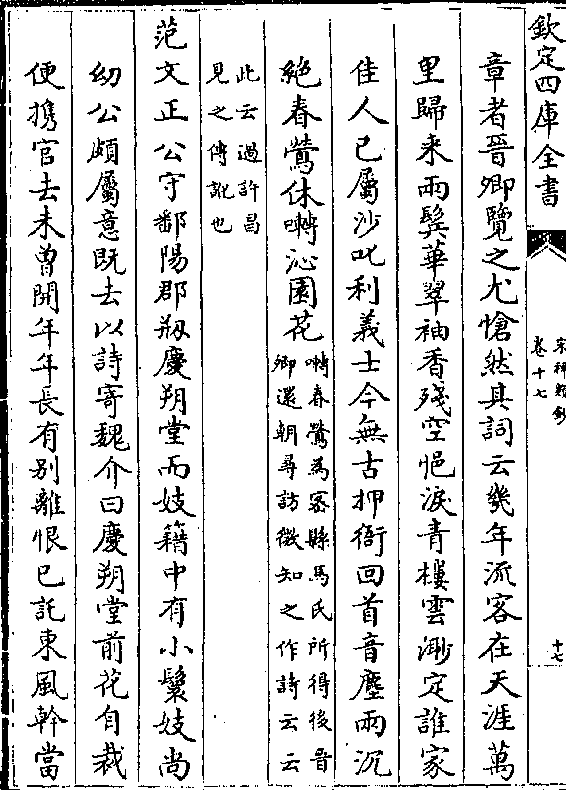 欽定四庫全書
宋稗類鈔
卷十七
十七
章者晉卿覽之尤愴然其詞云幾年流客在天涯萬
里歸來兩鬢華翠袖香殘空悒淚青樓雲渺定誰家
佳人已屬沙叱利義士今無古押衙回首音塵兩沉
絶春鶯休囀沁園花囀春鶯為密縣馬氏所得後晉
卿還朝尋訪微知之作詩云云
此云過許昌
見之傳訛也
范文正公守鄱陽郡剏慶朔堂而妓籍中有小鬟妓尚
幼公頗屬意既去以詩寄魏介曰慶朔堂前花自栽
便攜官去未曾開年年長有别離恨已託東風幹當